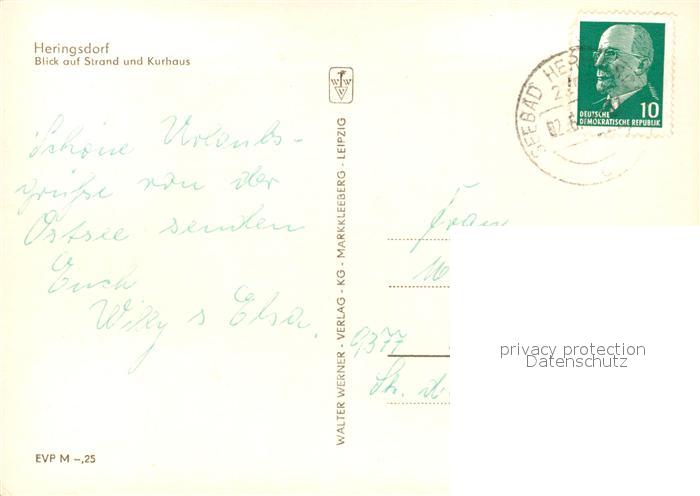 Heringsdorf
Blick auf Strand und Kurhaus
Schöne Urlaubs-
grüße von der
Ostsee senden
Euch
Willy s Elsa.
WALTER WERNER - VERLAG - KG - MARKKLEEBERG - LEIPZIG
SEEBAD
10
DEUTSCHE
DEMOKRATISCHE REPUBLIK
Frau
9377
privacy protection
Datenschutz
EVP M –,25